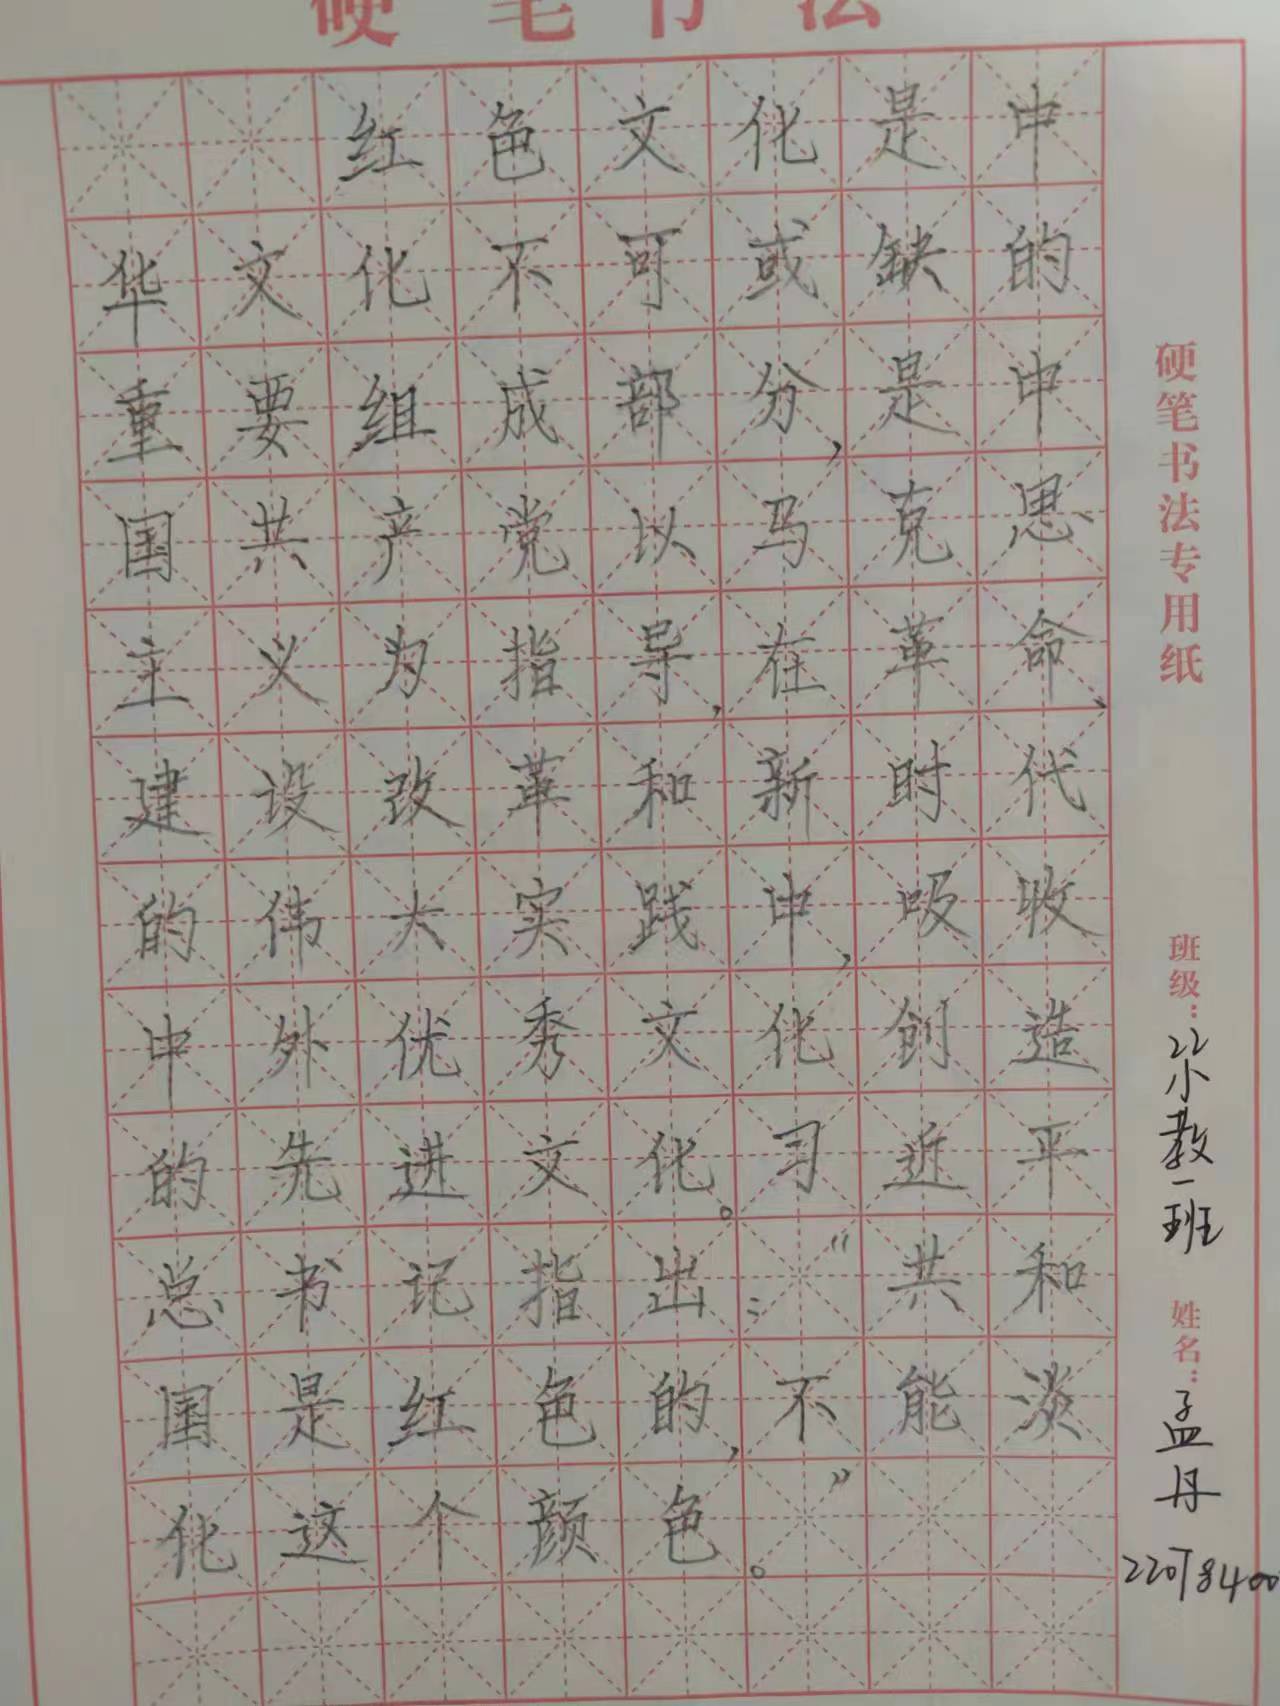 硬笔书法
红色文化是中
华文化不可或缺的
重要组成部分，是中
国共产党以马克思
主义为指导，在革命、
建设改革和新时代
的伟大实践中，吸收
中外优秀文化创造
的先进文化。习近平
总书记指出：“共和
国是红色的，不能淡
化这个颜色。”
硬笔书法专用纸
班级：22小教一班
姓名：孟丹